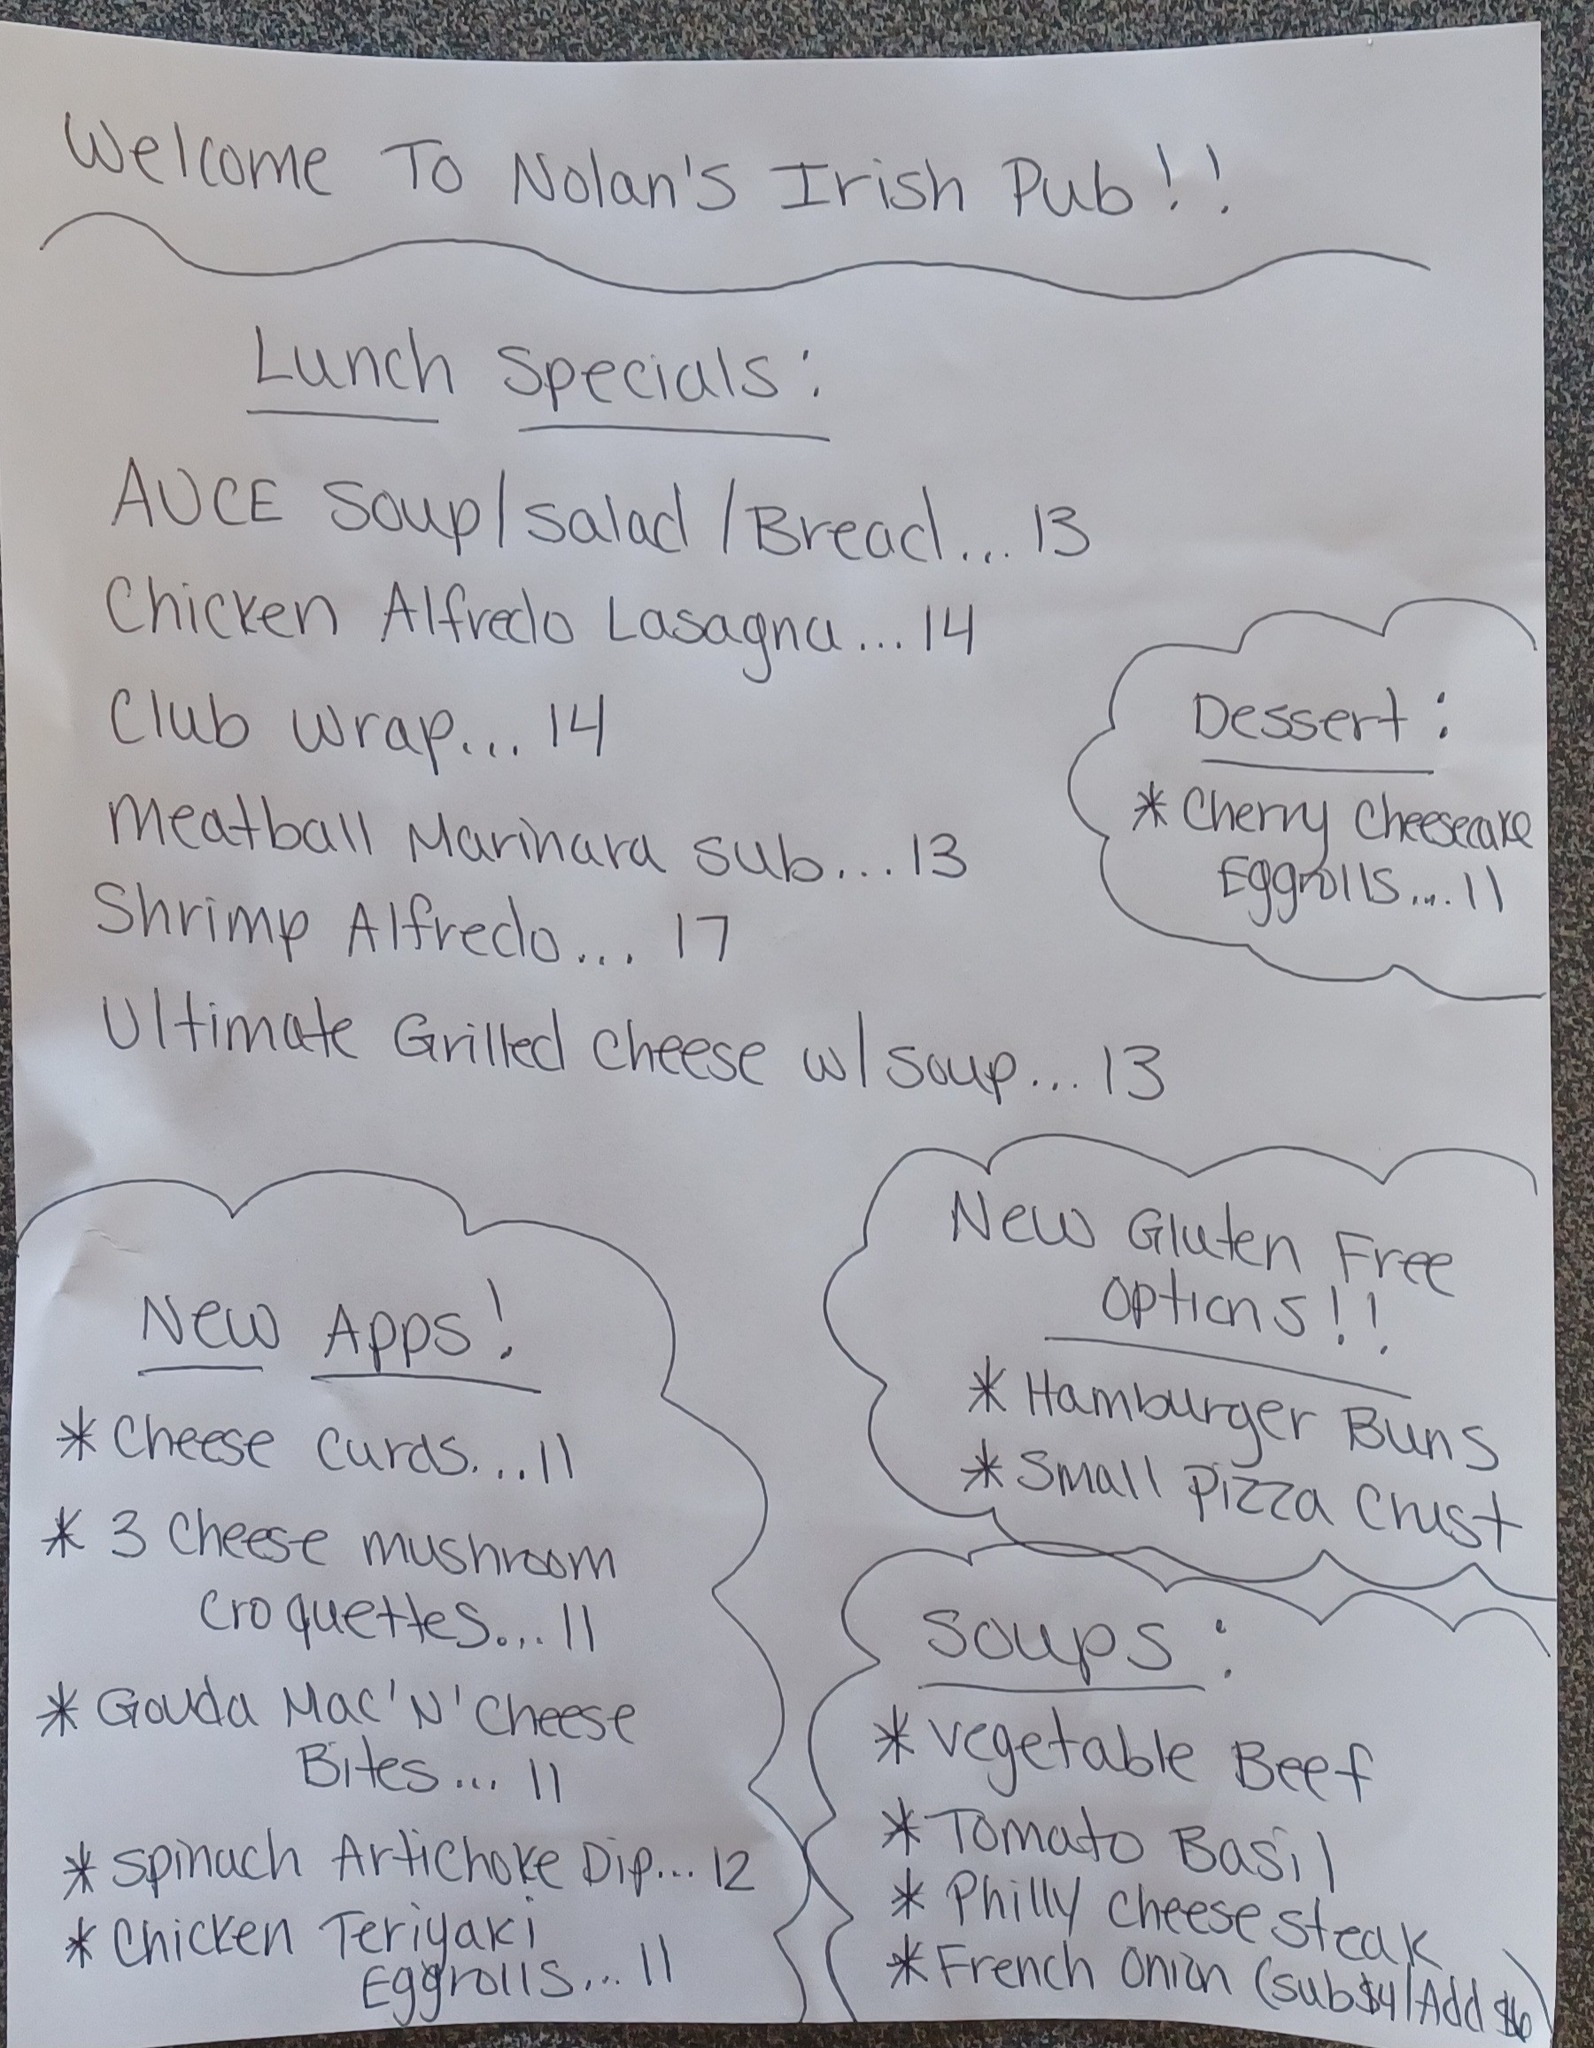 Welcome To Nolan's Irish Pub!!
Lunch Specials:
AUCE Soup/Salad/Bread... 13
Chicken Alfredo Lasagna... 14
Club Wrap... 14
Meatball Marinara Sub... 13
Shrimp Alfredo... 17
Ultimate Grilled Cheese w/ Soup... 13
Dessert:
* Cherry Cheesecake
Eggrolls... 11
New Apps!
* Cheese Curds... 11
* 3 Cheese Mushroom
Croquettes... 11
* Gouda Mac 'N' Cheese
Bites... 11
* Spinach Artichoke Dip... 12
* Chicken Teriyaki
Eggrolls... 11
New Gluten Free
Options!!
* Hamburger Buns
* Small Pizza Crust
Soups:
* Vegetable Beef
* Tomato Basil
* Philly Cheese Steak
* French Onion (Sub $4/Add $6)